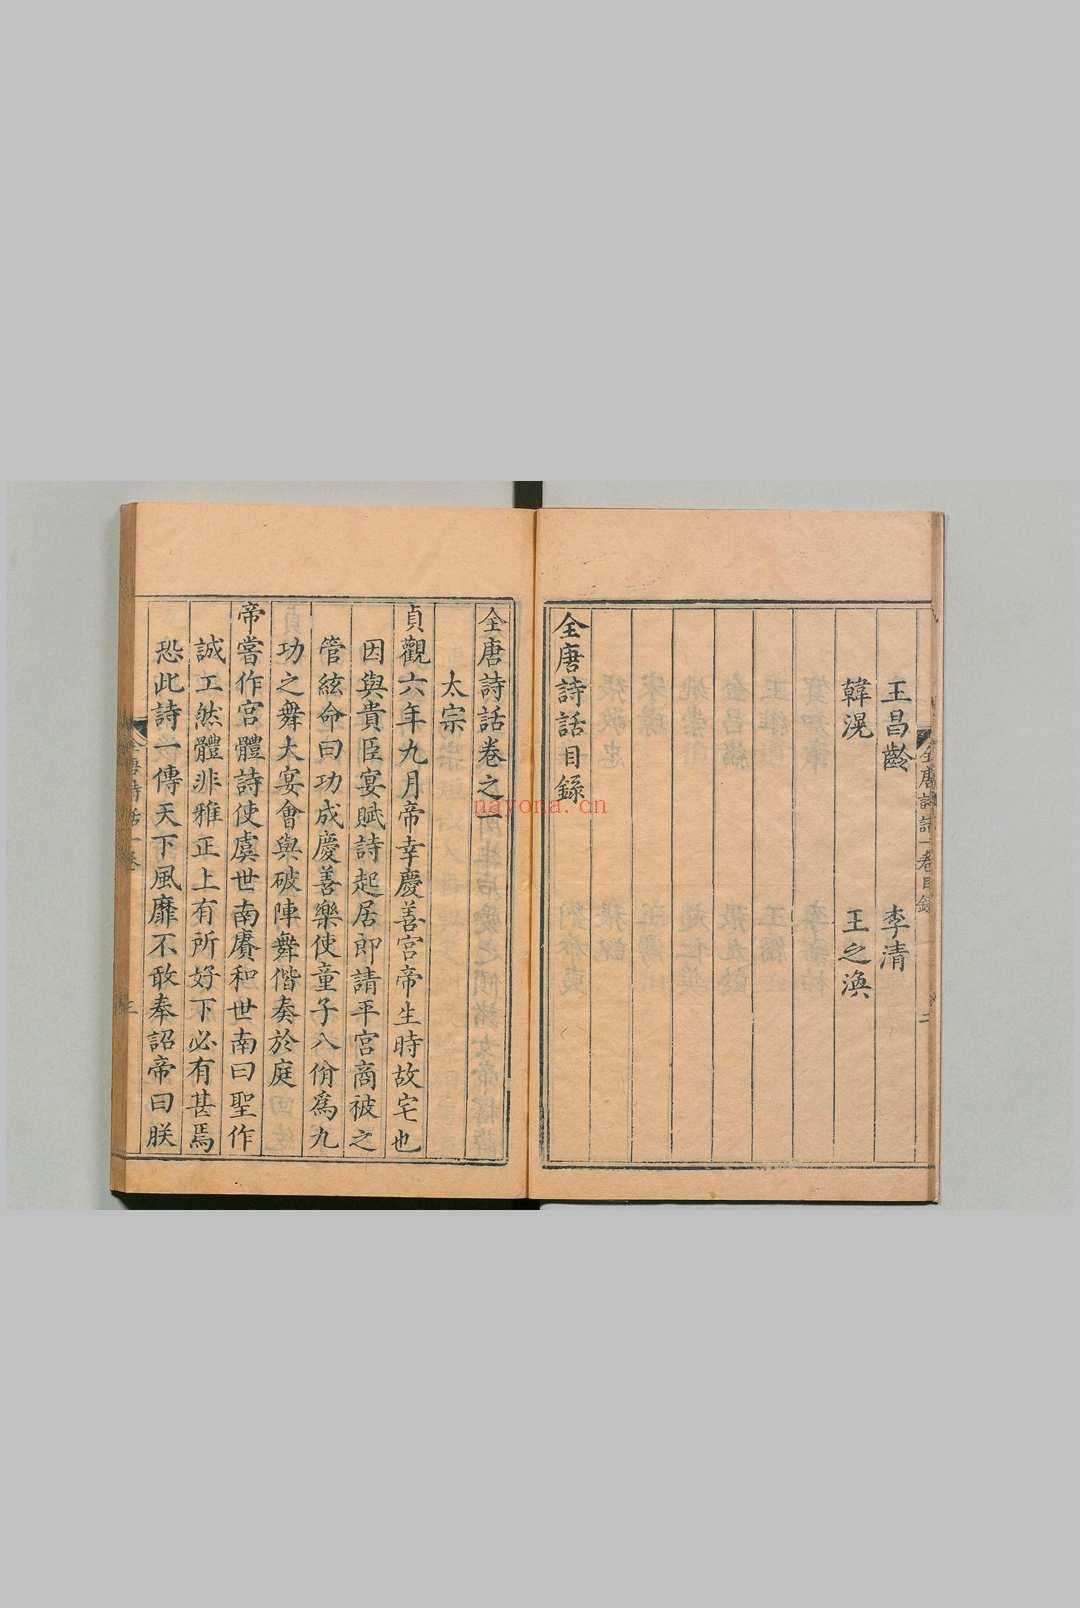 王昌齡 李清
韓滉 王之渙
全唐詩話目錄
全唐詩話卷之一
太宗
貞觀六年九月帝幸慶善宮帝生時故宅也
因與貴臣宴賦詩起居郎請平宮商被之
管絃命曰功成慶善樂使童子八佾爲九
功之舞大宴會與破陣舞偕奏於庭
帝嘗作宮體詩使虞世南賡和世南曰聖作
誠工然體非雅正上有所好下必有甚焉
恐此詩一傳天下風靡不敢奉詔帝曰朕
nayona.cn